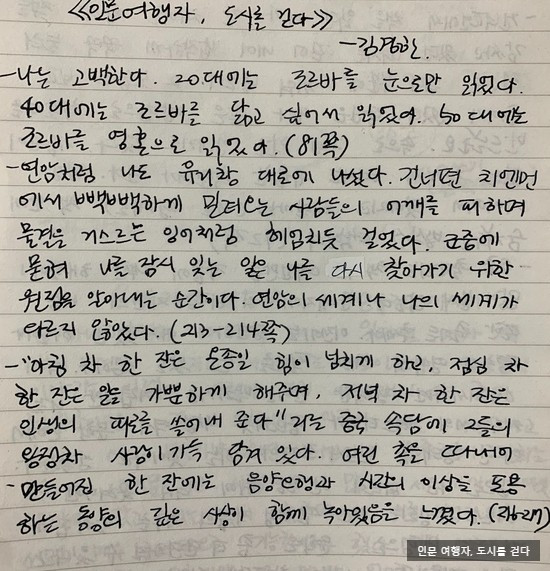 《인문여행자, 도시를 걷다》
-김경한.
-나는 고백한다. 20대에는 조르바를 눈으로만 읽었다.
40대에는 조르바를 닮고 싶어서 읽었어. 50대에는
조르바를 영혼으로 읽었다. (81쪽)
-연암처럼 나도 유리창 대로에 나섰다. 건너편 치엔먼
에서 빽빽하게 밀려오는 사람들의 어깨를 피하며
물결을 거스르는 잉어처럼 헤엄치듯 걸었다. 군중에
묻혀 나를 잠시 잊는 일은 나를 다시 찾아가기 위한
원점을 알아내는 순간이다. 연암의 세계나 나의 세계가
다르지 않았다. (213-214쪽)
-"아침 차 한 잔은 온종일 힘이 넘치게 하고, 점심 차
한 잔은 일을 가뿐하게 해주며, 저녁 차 한 잔은
인생의 피로를 쓸어내 준다"라는 중국 속담에 그들의
차 사랑이 가득 담겨 있다. 여린 촉을 따내어
-만들어진 한 잔에는 음양오행과 시간의 이상을 포용
하는 동양의 깊은 사상이 함께 녹아있음을 느꼈다.
인문 여행자, 도시를 걷다